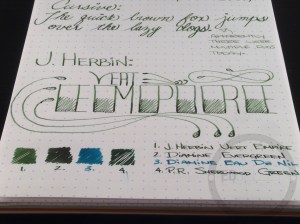 Cursive:
The quick brown fox jumps
over the lazy dogs!
J. HERBIN:
VERT
EMPIRE
1. J. HERBIN VERT EMPIRE
2. DIAMINE EVERGREEN
3. DIAMINE EAU DE NIL
4. P.R. SHERWOOD GREEN
1. 2. 3. 4.